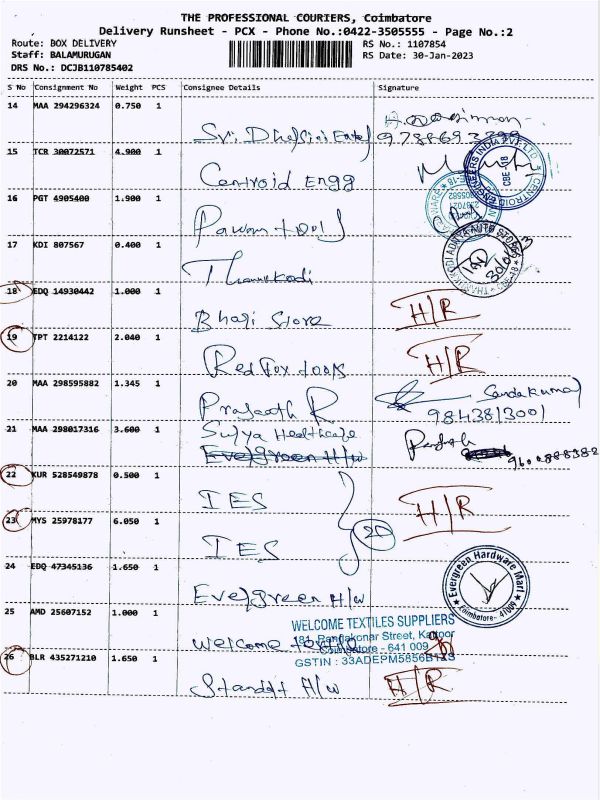 THE PROFESSIONAL COURIERS, Coimbatore
Delivery Runsheet - PCX - Phone No.:0422-3505555 - Page No.:2
Route: BOX DELIVERY RS No.: 1107854
Staff: BALAMURUGAN RS Date: 30-Jan-2023
DRS No.: DCJB110785402
S No Consignment No Weight PCS Consignee Details Signature
14 MAA 294296324 0.750 1
Sri
15 TCR 30072571 4.900 1
Centroid Engg
CENTROID ENGINEERS INDIA PVT LTD
CBE-18
16 PGT 4905400 1.900 1
Pawan tools
17 KDI 807567 0.400 1
Thamukodi
30/01/23
18 EDQ 14930442 1.000 1
Bhagi Store H/R
19 TPT 2214122 2.040 1
Red Fox tools H/R
20 MAA 298595882 1.345 1
Prasaath R
9843813001
21 MAA 298017316 3.600 1
Surya Healthcare
Evergreen H/w
22 KUR 528549878 0.500 1
IES H/R
23 MYS 25978177 6.050 1
IES
24 EDQ 47345136 1.650 1
Evergreen H/w
Evergreen Hardware Mart
Coimbatore-
25 AMD 25607152 1.000 1
Welcome
WELCOME TEXTILES SUPPLIERS
181, Rangakonar Street, Kattoor
Coimbatore - 641 009
GSTIN : 33ADEPM5856B1ZS
26 BLR 435271210 1.650 1
Standart H/w H/R